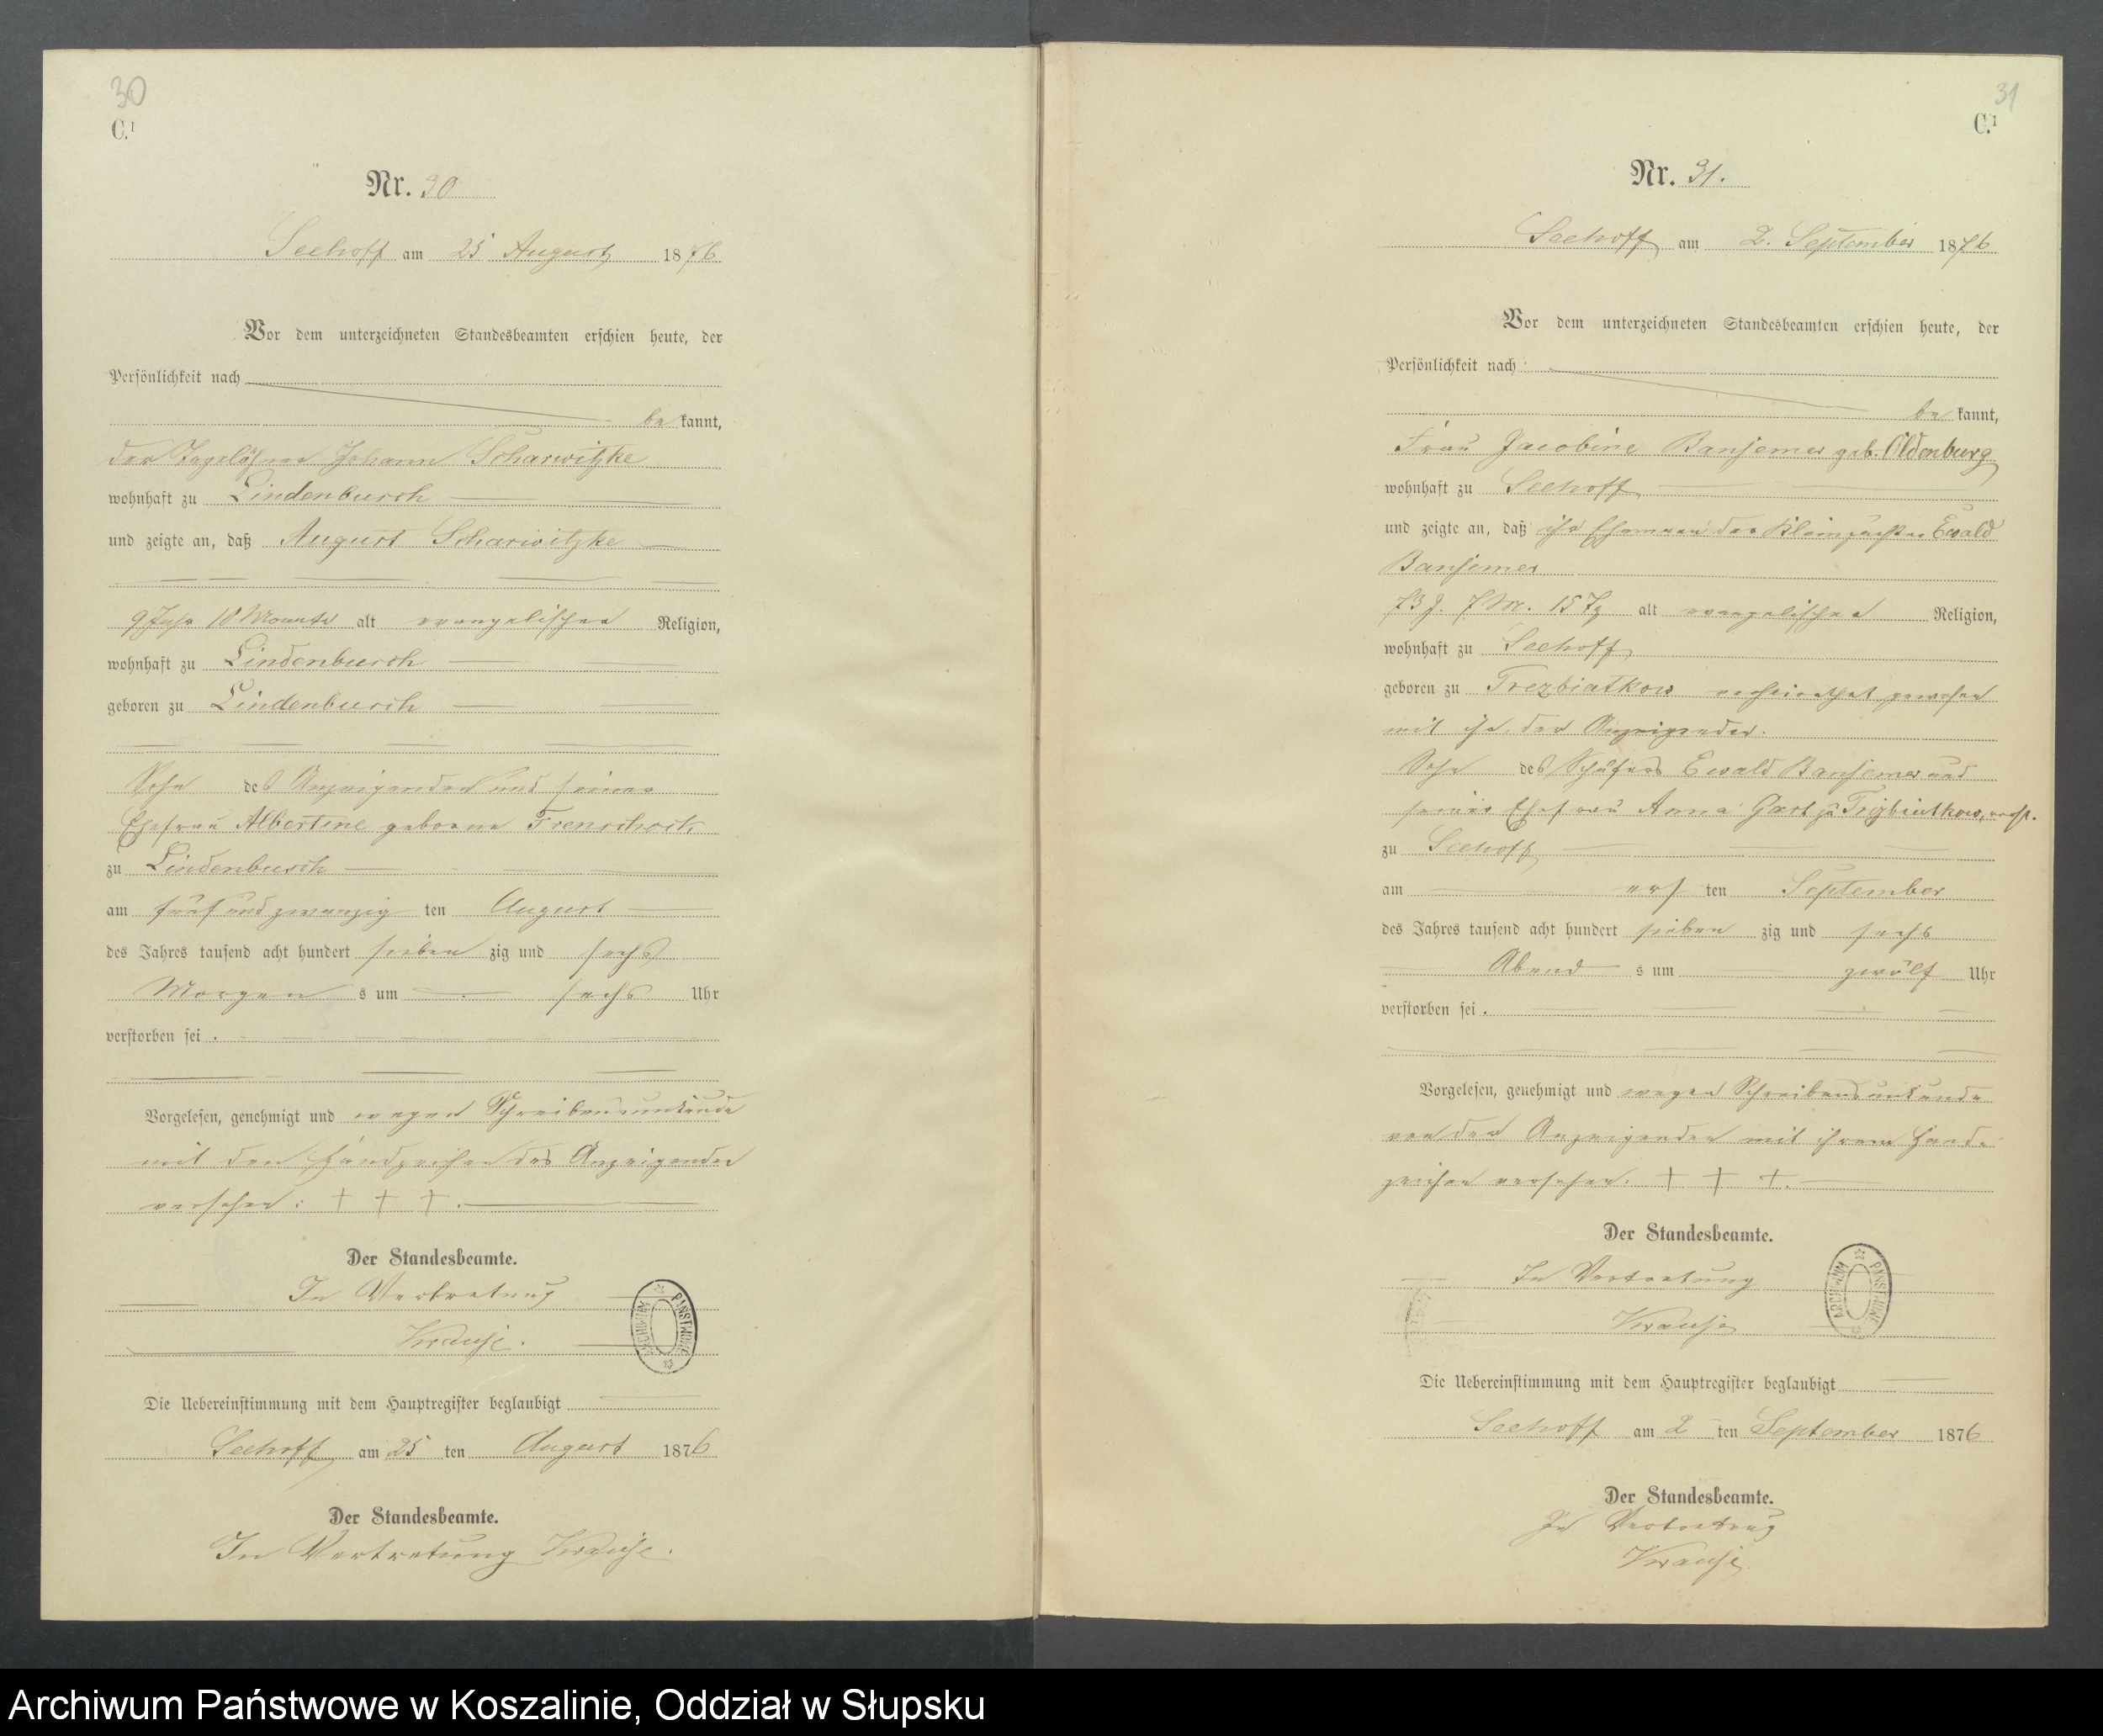 30
C.¹
Nr. 30
Seehoff am 25 August 1876
Vor dem unterzeichneten Standesbeamten erschien heute, der
Persönlichkeit nach
be kannt,
der Tagelöhner Johann Scharwitzke
wohnhaft zu Lindenbusch
und zeigte an, daß August Scharwitzke
9 Jahr 10 Monate alt evangelischer Religion,
wohnhaft zu Lindenbusch
geboren zu Lindenbusch
Sohn des Anzeigenden und seiner
Ehefrau Albertine geborne
zu Lindenbusch
am fünf und zwanzig ten August
des Jahres tausend acht hundert sieben zig und sechs
Morgen s um sechs Uhr
verstorben sei.
Vorgelesen, genehmigt und wegen Schreibensunkunde
mit den Handzeichen des Anzeigenden
versehen: + + +.
Der Standesbeamte.
In Vertretung
Krause.
ARCHIWUM PAŃSTWOWE
Die Uebereinstimmung mit dem Hauptregister beglaubigt
Seehoff am 25 ten August 1876
Der Standesbeamte.
In Vertretung Krause.
31
C.¹
Nr. 31.
Seehoff am 2. September 1876
Vor dem unterzeichneten Standesbeamten erschien heute, der
Persönlichkeit nach
be kannt,
Frau Jacobine Bansemer geb. Oldenburg
wohnhaft zu Seehoff
und zeigte an, daß ihr Ehemann der Ewald
Bansemer
73 J. 7 M. 15 Tg alt evangelischer Religion,
wohnhaft zu Seehoff
geboren zu Trezbiatkow verheirathet gewesen
mit ihr, der Anzeigender.
Sohn des Schäfers Ewald Bansemer und
seiner Ehefrau Anna zu Trzybiatkow,
zu Seehoff
am ers ten September
des Jahres tausend acht hundert sieben zig und sechs
Abend s um zwölf Uhr
verstorben sei.
Vorgelesen, genehmigt und wegen Schreibensunkunde
von der Anzeigenden mit ihrem Hand-
zeichen versehen. + + +.
Der Standesbeamte.
In Vertretung
Krause
ARCHIWUM PAŃSTWOWE
Die Uebereinstimmung mit dem Hauptregister beglaubigt
Seehoff am 2 ten September 1876
Der Standesbeamte.
In Vertretung
Krause.
Archiwum Państwowe w Koszalinie, Oddział w Słupsku